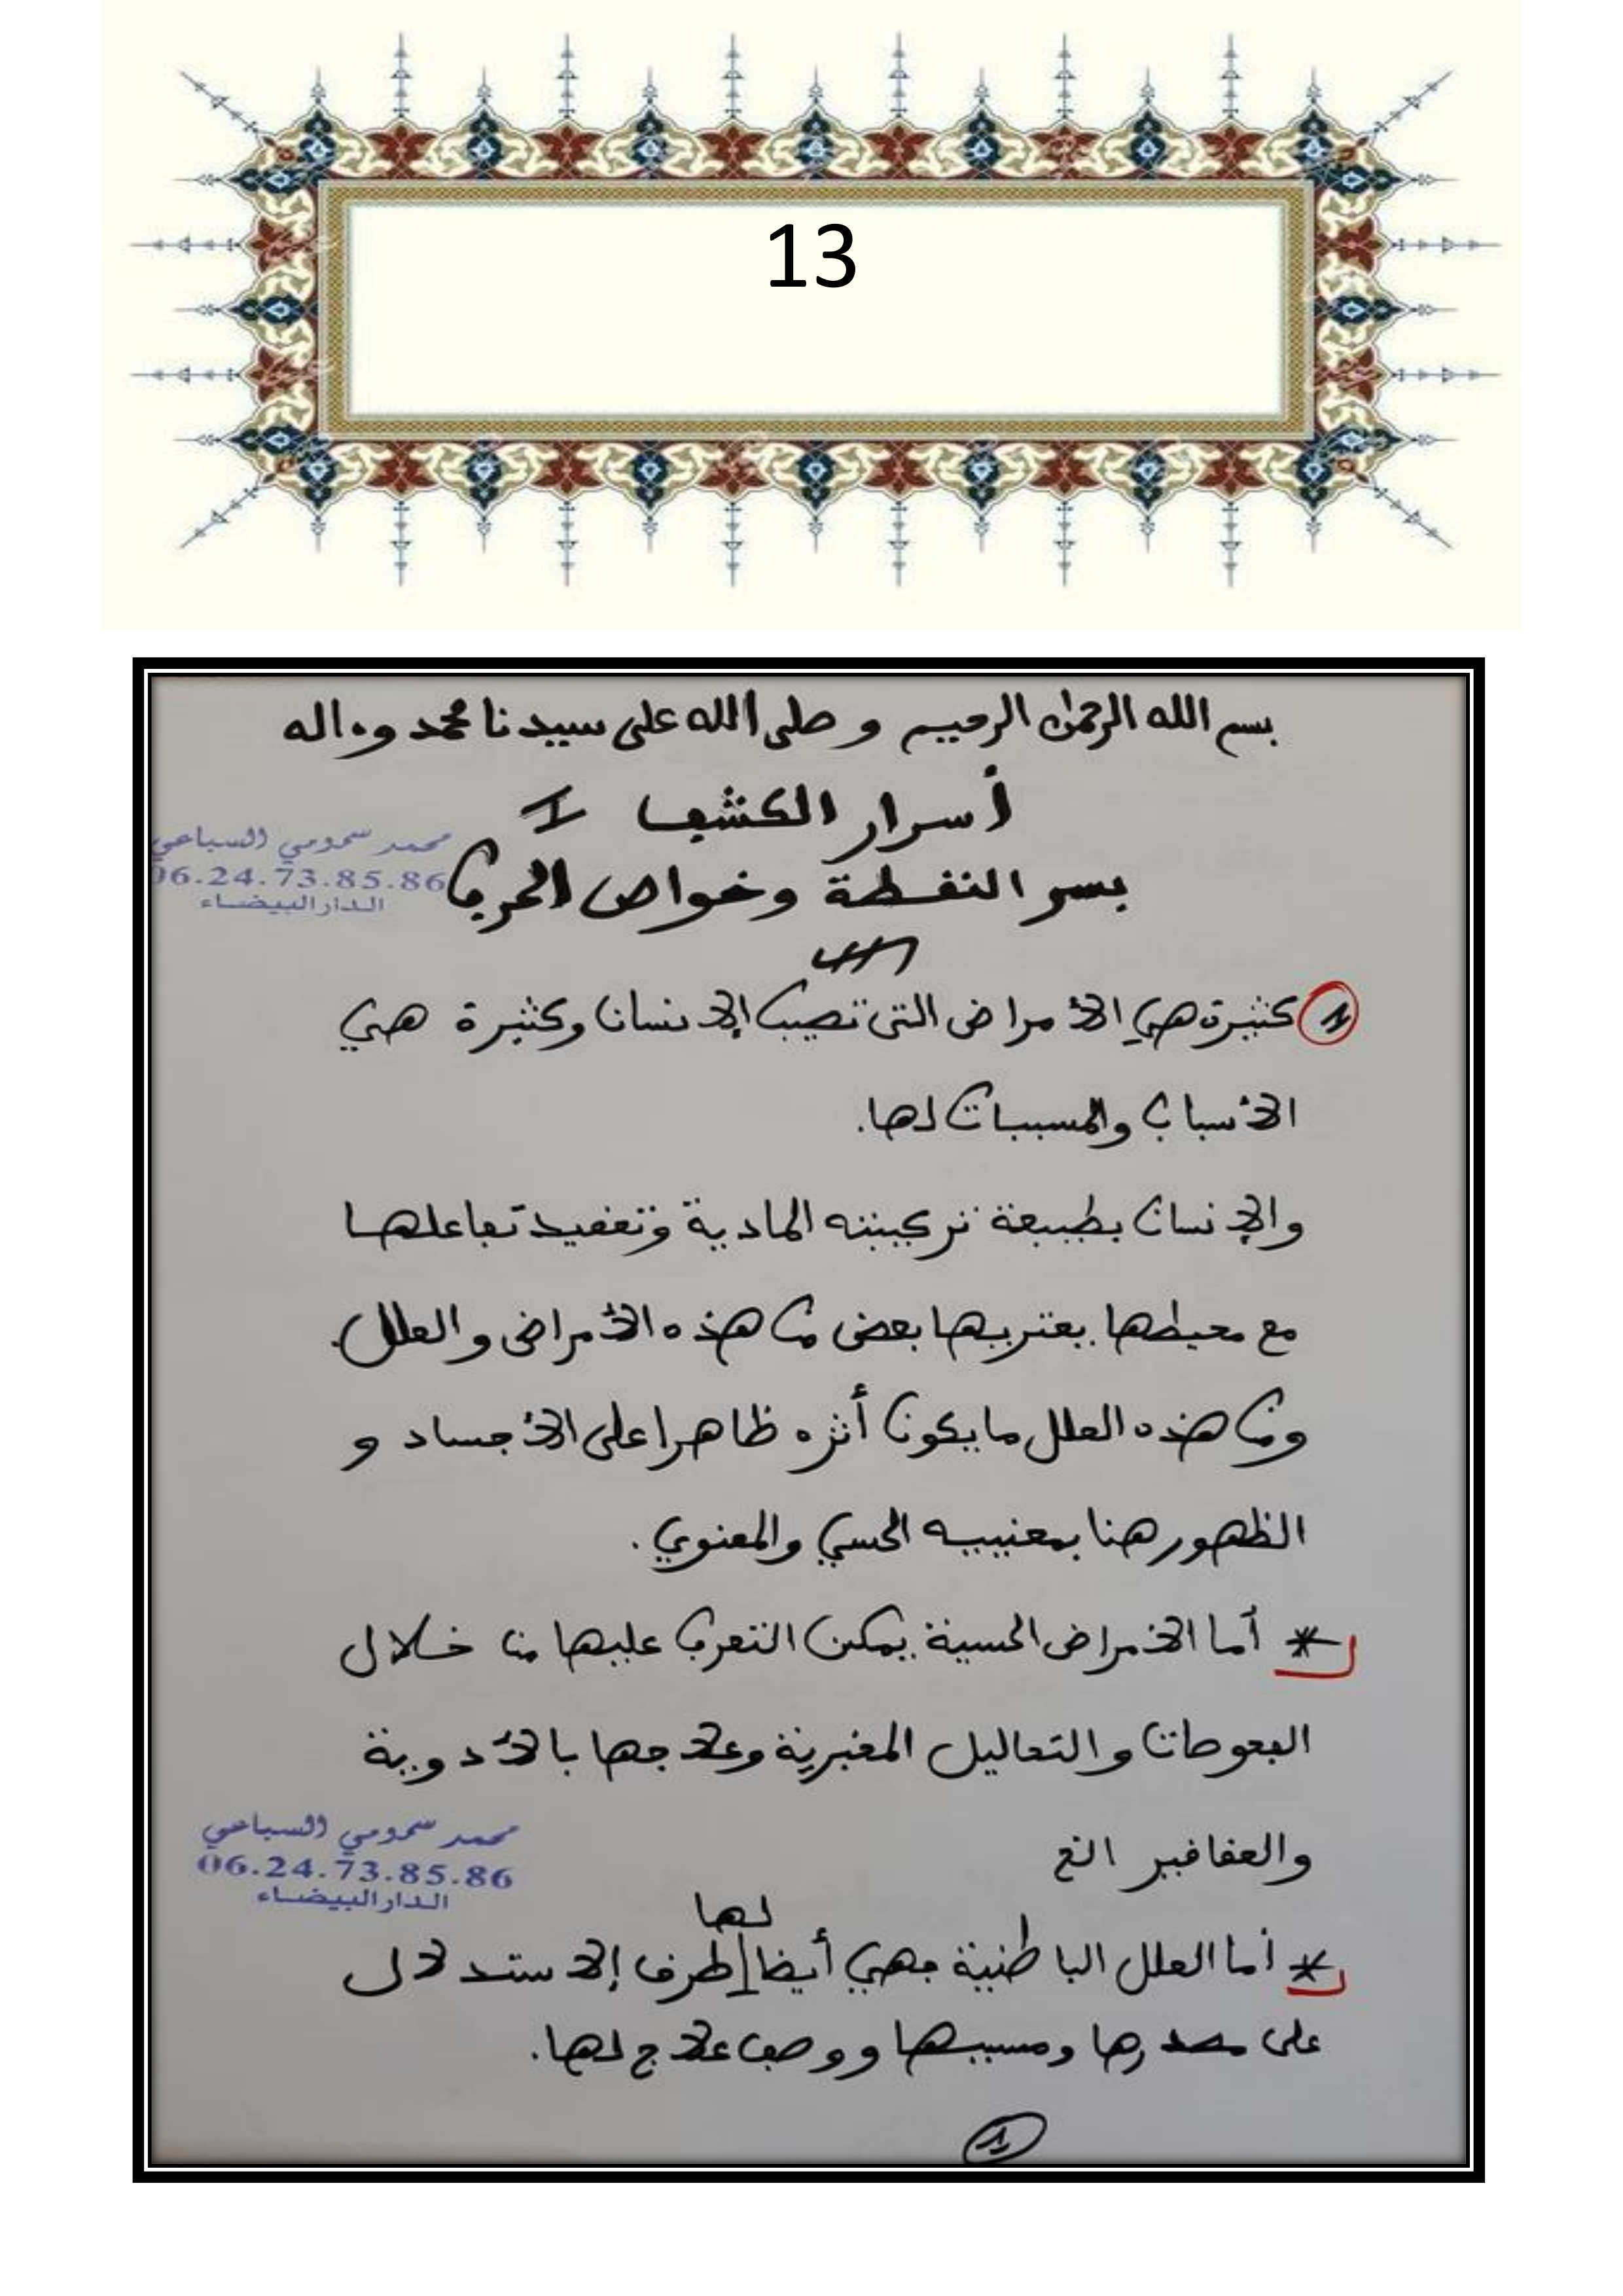 13
بسم الله الرحمن الرحيم وصلى الله على سيدنا محمد وءاله
أسرار الكشف 1
بسر النقطة وخواص الحرف
محمد سمومي السباعي
06.24.73.85.86
الدار البيضاء
1 كثيرة هي الأمراض التي تصيب الإنسان وكثيرة هي
الأسباب والمسببات لها.
والإنسان بطبيعة تركيبته المادية وتعقيد تفاعلها
مع محيطها يعتريها بعض من هذه الأمراض والعلل.
ومن هذه العلل ما يكون أثره ظاهرا على الأجساد و
الظهور هنا بمعنييه الحسي والمعنوي.
* أما الأمراض الحسية يمكن التعرف عليها من خلال
الفحوصات والتحاليل المخبرية وعلاجها بالأدوية
والعقاقير الخ
محمد سمومي السباعي
06.24.73.85.86
الدار البيضاء
* أما العلل الباطنية فهي أيضا لها طرق الاستدلال
على مصدرها ومسببها ووصف علاج لها.
1